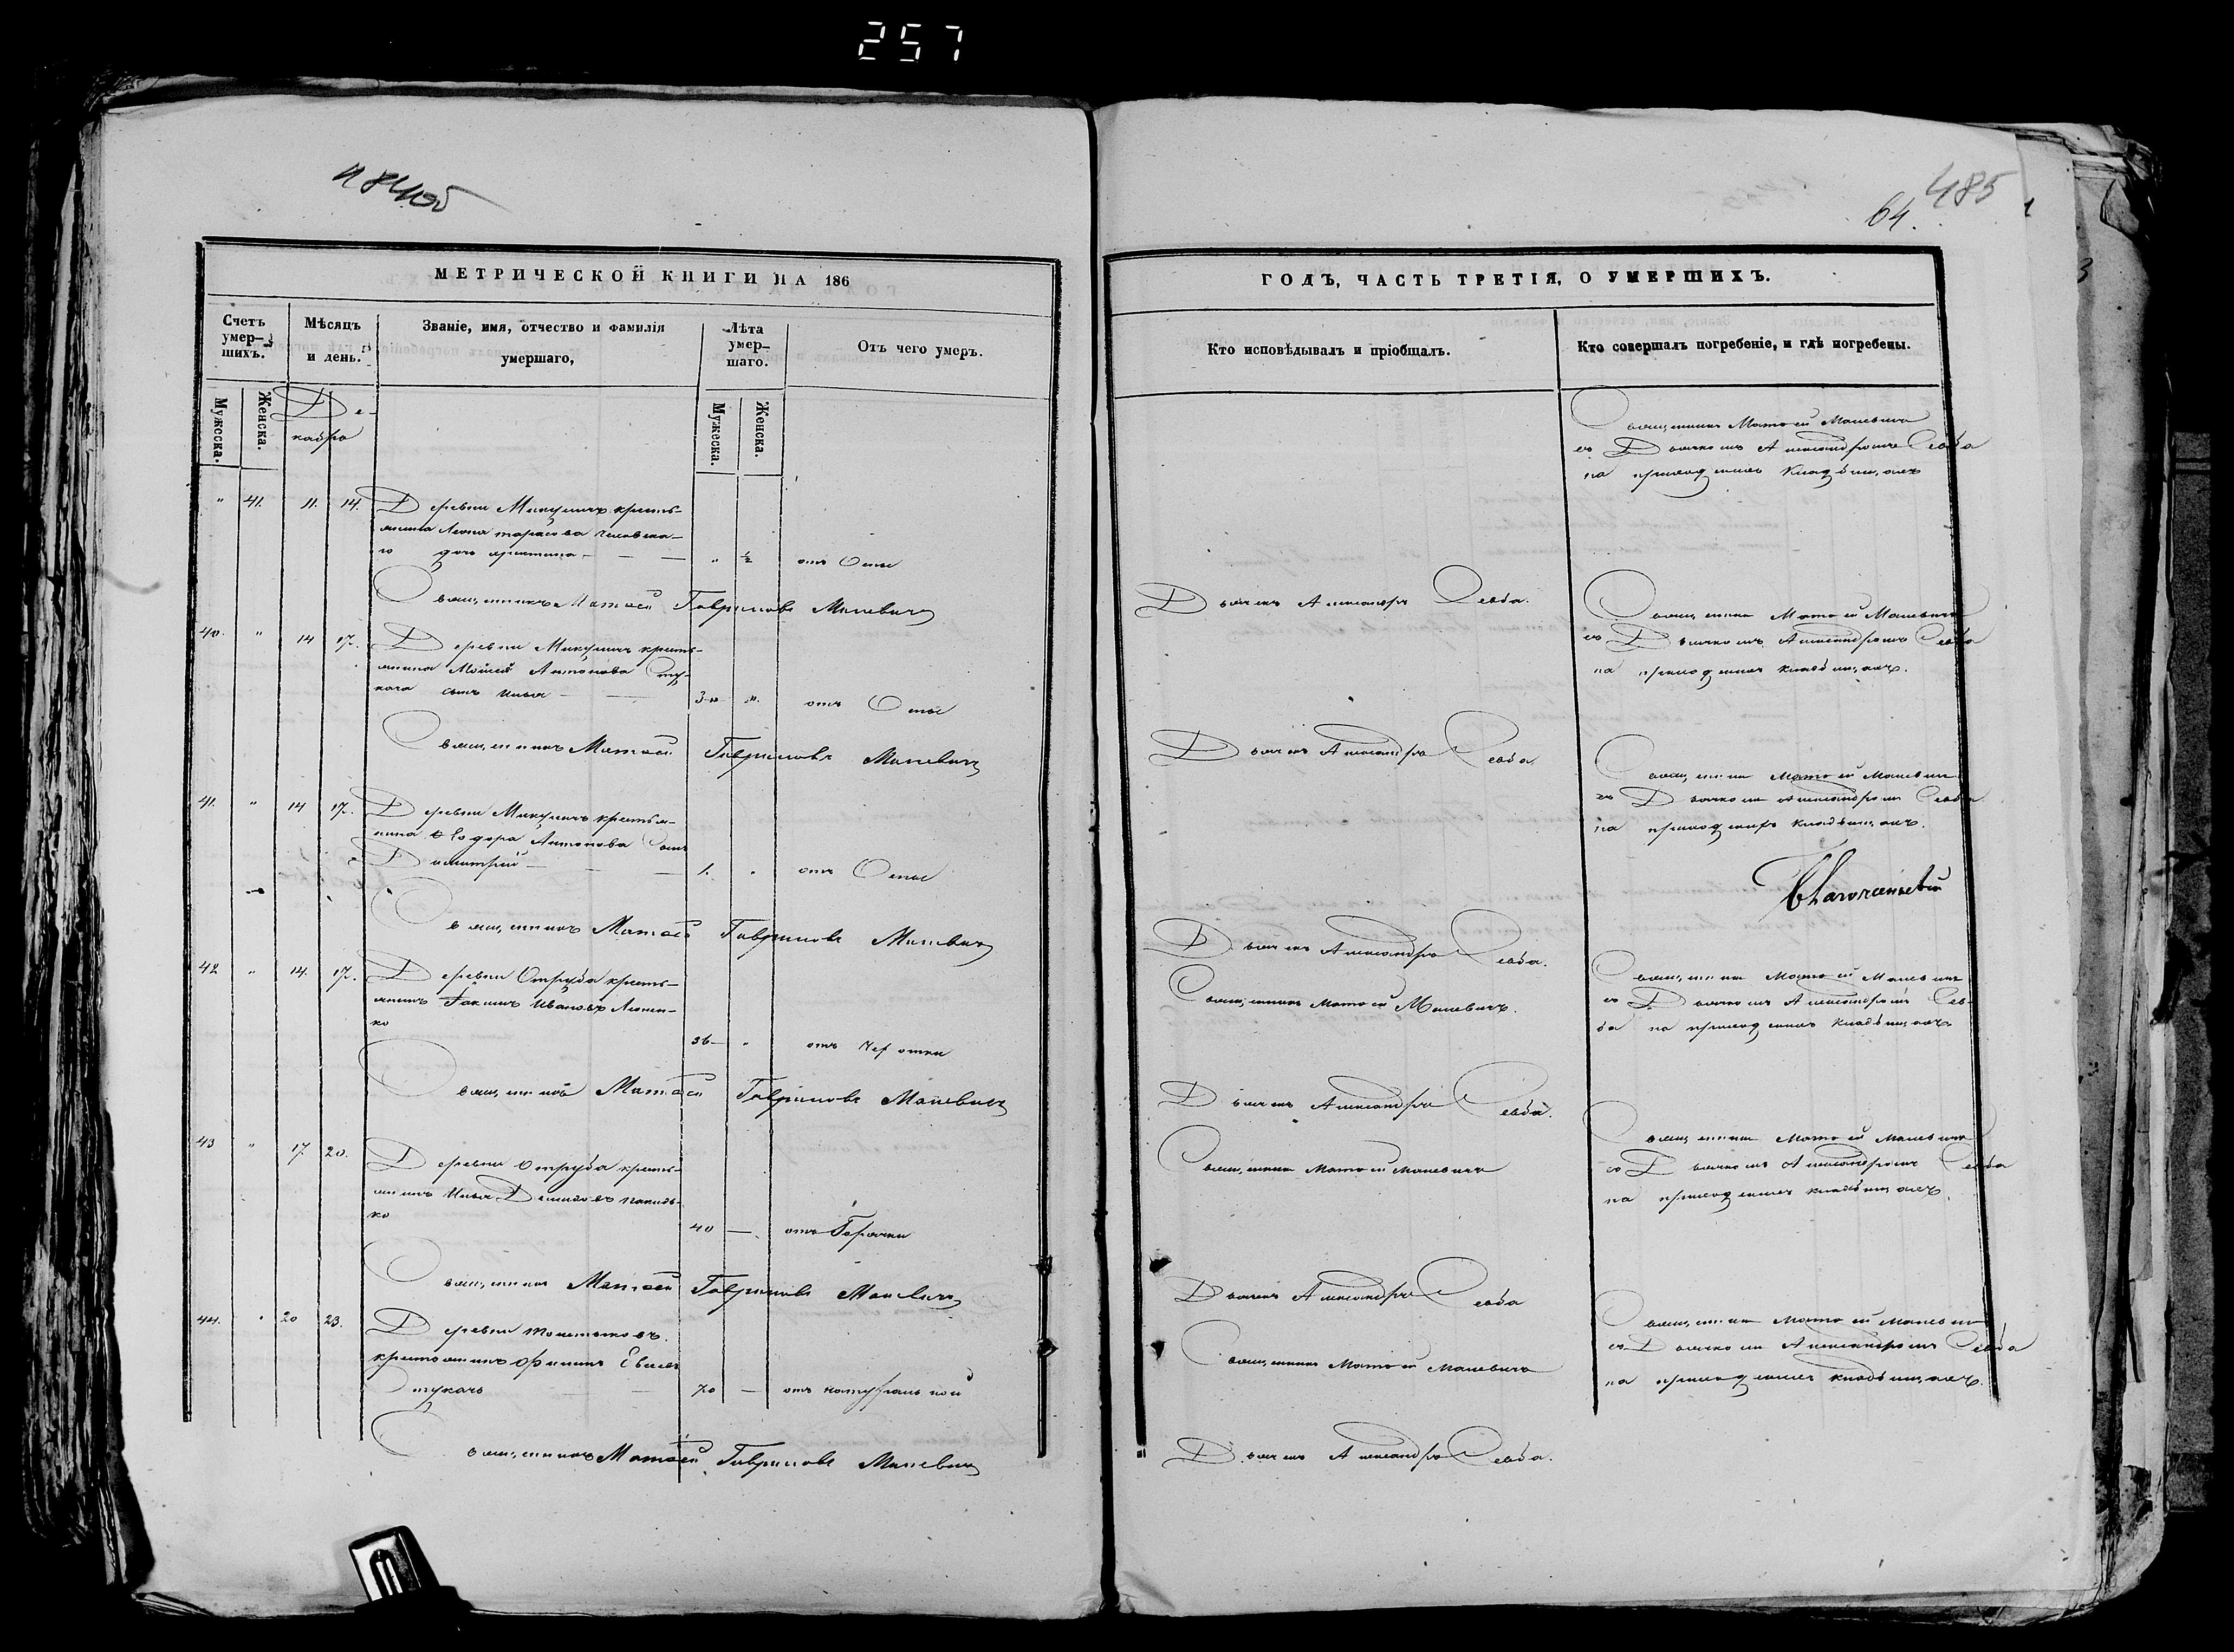 257
485
64.
МЕТРИЧЕСКОЙ КНИГИ НА 186
Счетъ умер-шихъ.
Мѣсяцъ и день.
Званіе, имя, отчество и фамилія умершаго,
Лѣта умер-шаго.
Отъ чего умеръ.
Мужеска.
Женска.
Де-
кабрь
Мужеска.
Женска.
" 41. 11. 14. Деревни Микуличъ кресть-
янина Леона Тарасова
дочь " ½ отъ Оспы
Священникъ Матѳей Гавриловъ Маневичъ
40. " 14 17. Деревни Микуличъ кресть-
янина Мойсея Антонова Сту-
кача сынъ Илья 3 " отъ Оспы
Священникъ Матѳей Гавриловъ Маневичъ
41. " 14 17. Деревни Микуличъ крестья-
нина Ѳеодора Антонова сынъ
Димитрій 1. " отъ Оспы
Священникъ Матѳей Гавриловъ Маневичъ
42 " 14. 17. Деревни Отруба кресть-
янинъ Іакимъ Ивановъ
36 " отъ Чахотки
Священникъ Матѳей Гавриловъ Маневичъ
43 " 17 20. Деревни Отруба кресть-
янинъ Илья Демидовъ
40 — отъ Горячки
Священникъ Матѳей Гавриловъ Маневичъ
44. " 20 23. Деревни
крестьянинъ
Стукачъ 70 — отъ натуральной
Священникъ Матѳей Гавриловъ Маневичъ
ГОДЪ, ЧАСТЬ ТРЕТІЯ, О УМЕРШИХЪ.
Кто исповѣдывалъ и пріобщалъ.
Кто совершалъ погребеніе, и гдѣ погребены.
Священникъ Матѳей Маневичъ
съ Дьячкомъ Александромъ Севба
на приходскомъ кладбищахъ
Дьячекъ Александръ Севба.
Священникъ Матѳей Маневичъ
съ Дьячкомъ Александромъ Севба
на приходскихъ кладбищахъ.
Дьячекъ Александръ Севба
Священникъ Матѳей Маневичъ
съ Дьячкомъ Александромъ Севба.
на приходскихъ кладбищахъ.
Дьячекъ Александръ Севба.
Священникъ Матѳей Маневичъ.
Священникъ Матѳей Маневичъ
съ Дьячкомъ Александромъ Сев-
ба на приходскихъ кладбищахъ
Дьячекъ Александръ Севба.
Священникъ Матѳей Маневичъ
Священникъ Матѳей Маневичъ
съ Дьячкомъ Александромъ Севба
на приходскихъ кладбищахъ.
Дьячекъ Александръ Севба
Священникъ Матѳей Маневичъ
Священникъ Матѳей Маневичъ
съ Дьячкомъ Александромъ Севба
на приходскихъ кладбищахъ.
Дьячекъ Александръ Севба.